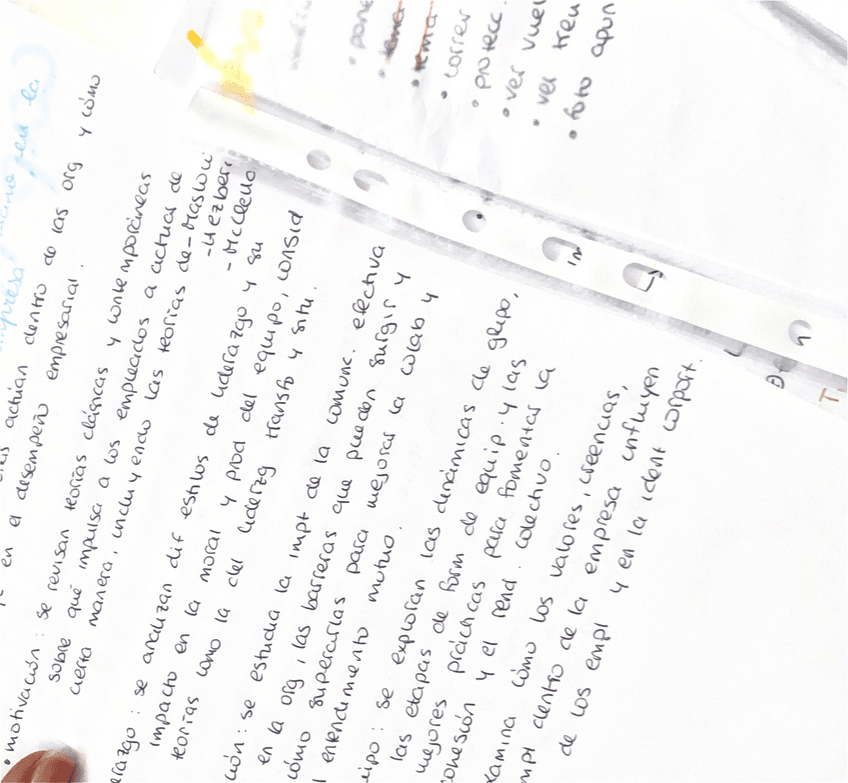 actúan dentro de las org y cómo
en el desempeño empresarial.
• motivación: se revisan teorías clásicas y contemporáneas
sobre qué impulsa a los empleados a actuar de
cierta manera, incluyendo las teorías de - Maslow
- Hezber
- McClella
erazgo: se analizan dif estilos de liderazgo y su
impacto en la moral y prod del equipo, consid
teorías como la del liderzg transfo y situ.
ción: se estudia la impt de la comunc. efectiva
en la org, las barreras que pueden surgir y
cómo superarlas para mejorar la colab y
l entendimiento mutuo.
uipo: se exploran las dinámicas de grupo,
las etapas de form de equip. y las
mejores prácticas para fomentar la
cohesión y el rend. colectivo.
xamina cómo los valores, creencias,
mpt dentro de la empresa influyen
de los empl y en la ident corport.
• pone
• tema
• tema
• correr
• protecc.
• ver vuel
• ver tren
• foto apun